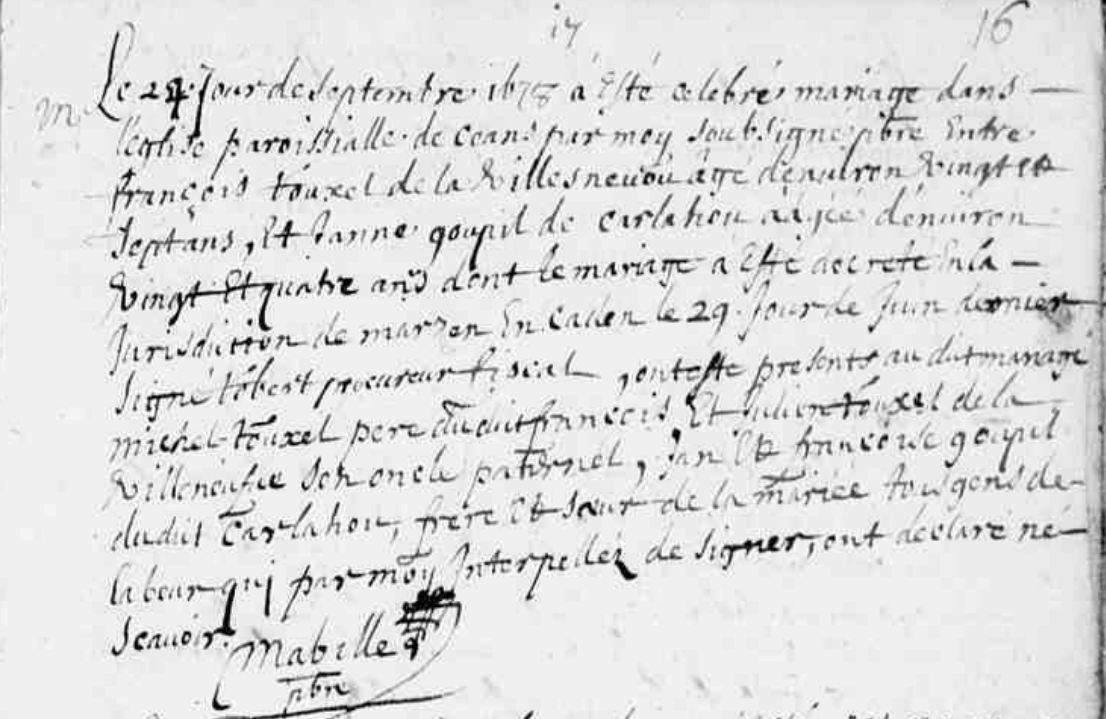 17 16
m Le 24 Jour de Septembre 1678 a Esté celebré mariage dans
l'eglise paroissialle de ceans par moy soubsigné pbre Entre
françois touxel de la Villesneuou âgé d'enuiron Vingt et
Sept ans, Et Janne goupil de carlahou aagée d'enuiron
Vingt Et quatre ans dont le mariage a Esté decreté En la
Jurisdiction de marzen En Caden le 29 Jour de Juin dernier
Signé procureur fiscal, ont esté presents au dit mariage
michel touxel pere du dit francois, Et Julien touxel de la
Villeneufue son oncle paternel, Jan Et françoise goupil
du dit Carlahou, frere Et sœur de la mariée tous gens de
labeur qui par moy Interpellez de signer, ont declaré né
scauoir.
Mabille
pbre